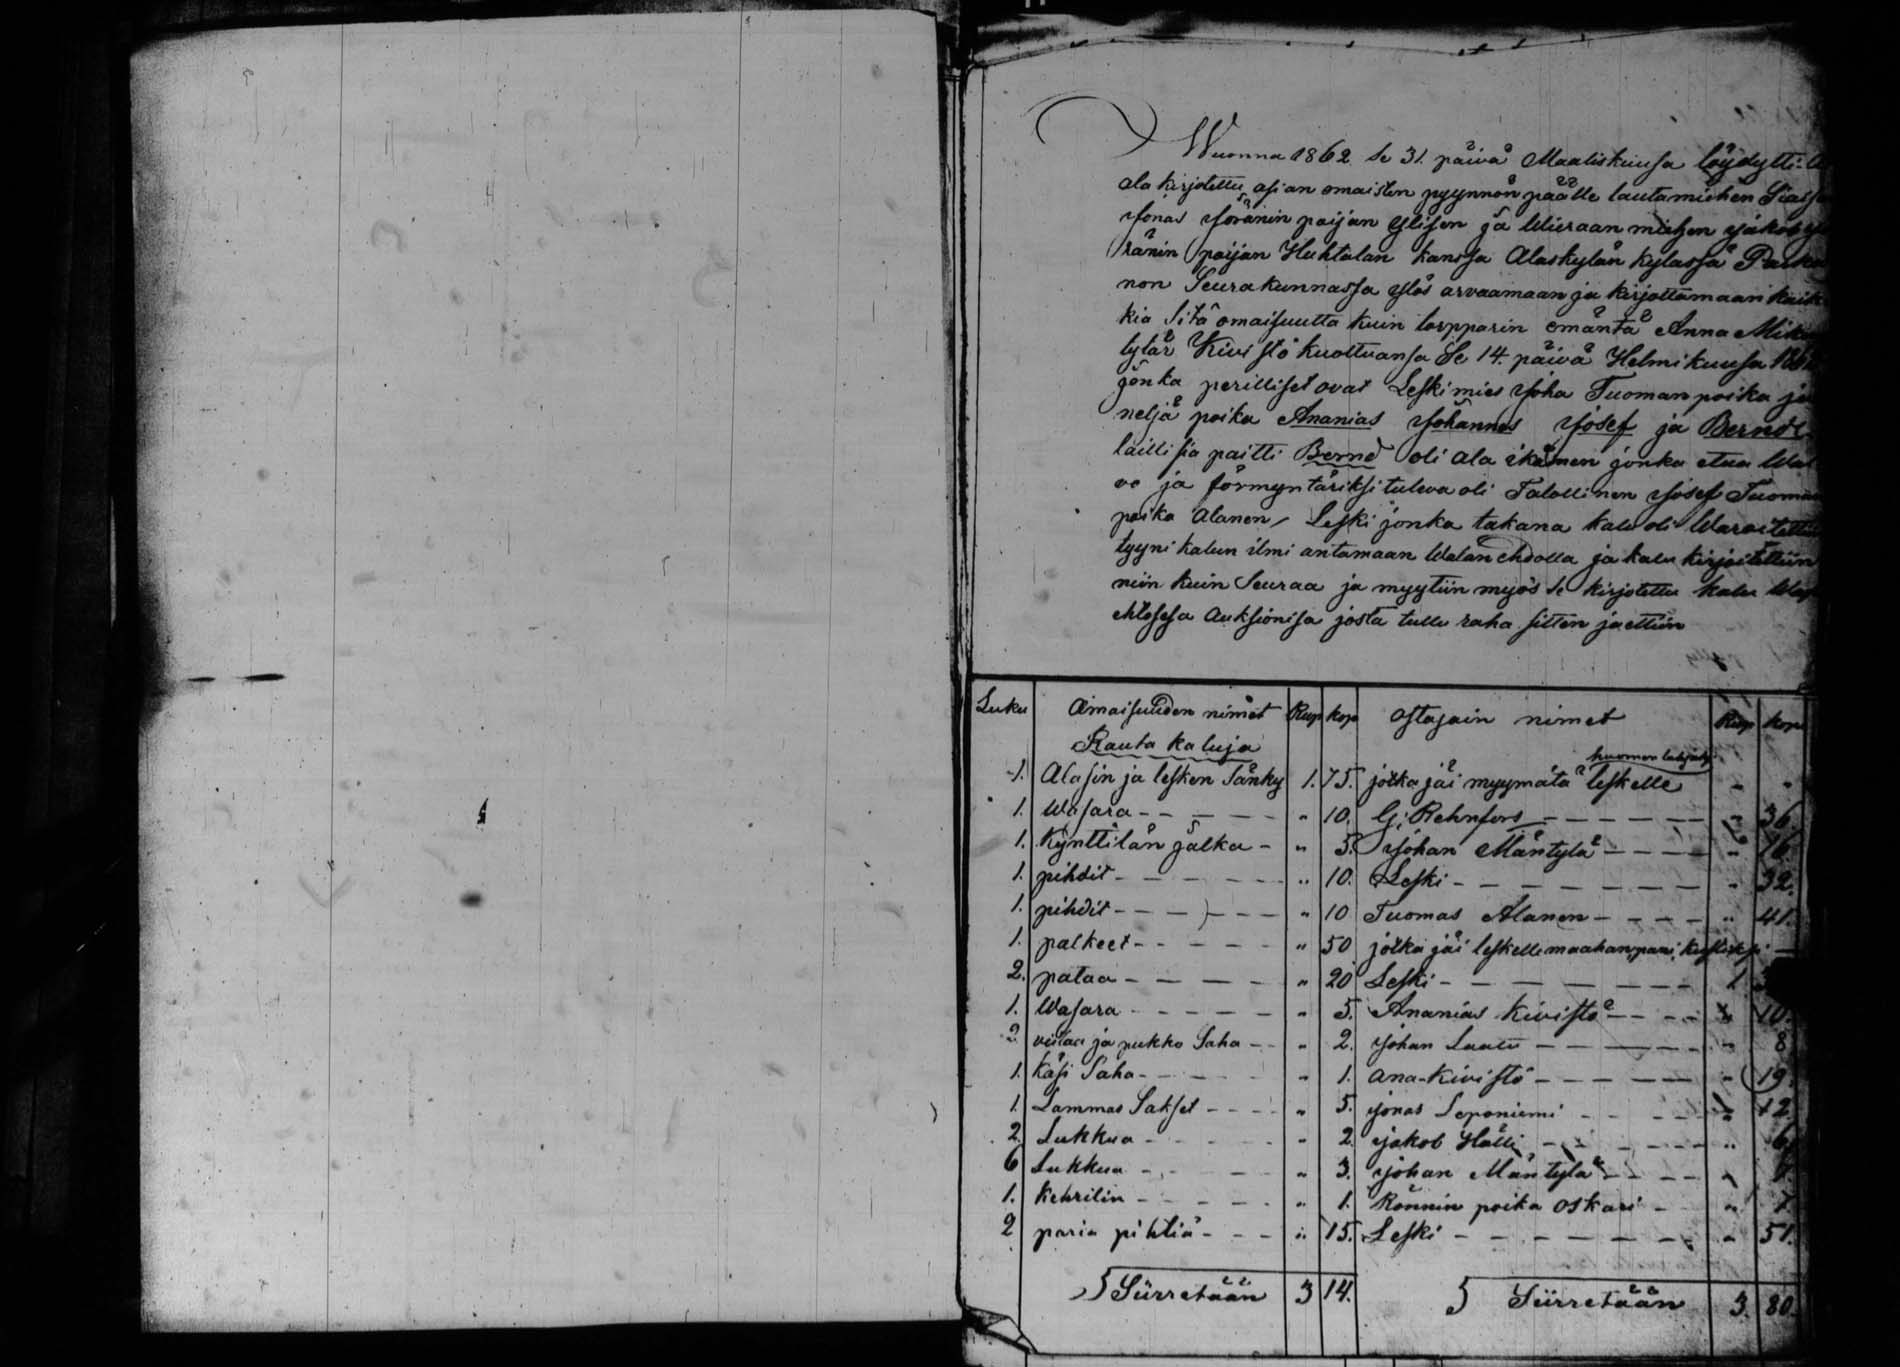 Wuonna 1862 se 31. päivä Maaliskuusa löydytti
ala kirjotettu asian omaisten pyynnön päälle lautamiehen Siassa
Jonas Jöränin poijan Ylisen ja Wieraan miehen Jakob
ränin poijan Huhtalan kanssa Alaskylän kylässä
non Seurakunnassa ylös arvaamaan ja kirjottamaan
kia Sitä omaisuutta kuin torpparin emäntä Anna
tytär Kivistö kuoltuansa Se 14. päivä Helmikuusa
jonka perilliset ovat Leski mies Joha Tuomanpoika ja
neljä poika Ananias Johannes Josef ja Bernd
laillisia paitti Bernd oli ala ikäinen jonka etua
vo ja förmyntäriksi tuleva oli Talollinen Josef
poika Alanen / Leski jonka takana kalu oli
tyyni kalun ilmi antamaan Walan ehdolla ja kalu kirjoitettiin
niin kuin Seuraa ja myytiin myös se kirjotettu kalu
ehtosesa Auksionisa josta tullu raha sitten jaettiin
Luku Omaisuuden nimet Rup kop ostajain nimet Rup kop
Rauta kaluja
1. Alasin ja lesken Sänky 1. 75. jotka jäi myymätä leskelle „ „
1. Wasara - - - - - „ 10. G: Rehnfors - - - - - „ 36.
1. Kynttilän jalka - „ 5. Johan Mäntylä - - - - „ 16.
1. pihdit - - - - - - „ 10. Leski - - - - - - - „ 32.
1. pihdit - - - - - - „ 10 Tuomas Alanen - - - - „ 41.
1. palkeet - - - - - „ 50 jotka jäi leskelle maahan pani
2. pataa - - - - - „ 20 Leski - - - - - - - 1.
1. Wasara - - - - - „ 5. Ananias Kivistö - - - - „ 10.
2. viilaa ja pukko Saha - - „ 2. Johan Luatu - - - - - „ 8
1. Käsi Saha - - - - - „ 1. Ana-Kivistö - - - - - „ 19.
1. Lammas Sakset - - - - „ 5. Jonas Leponiemi - - - - „ 12.
2. Lukkua - - - - - „ 2. Jakob Hälli - - - - - „ 6.
6 Lukkua - - - - - „ 3. Johan Mäntylä - - - - „
1. Kehrilin - - - - - „ 1. Rönnin poika Oskari - „ 7.
2 paria pihtiä - - - „ 15. Leski - - - - - - - „ 51.
Siirretään 3 14. Siirretään 3. 80.